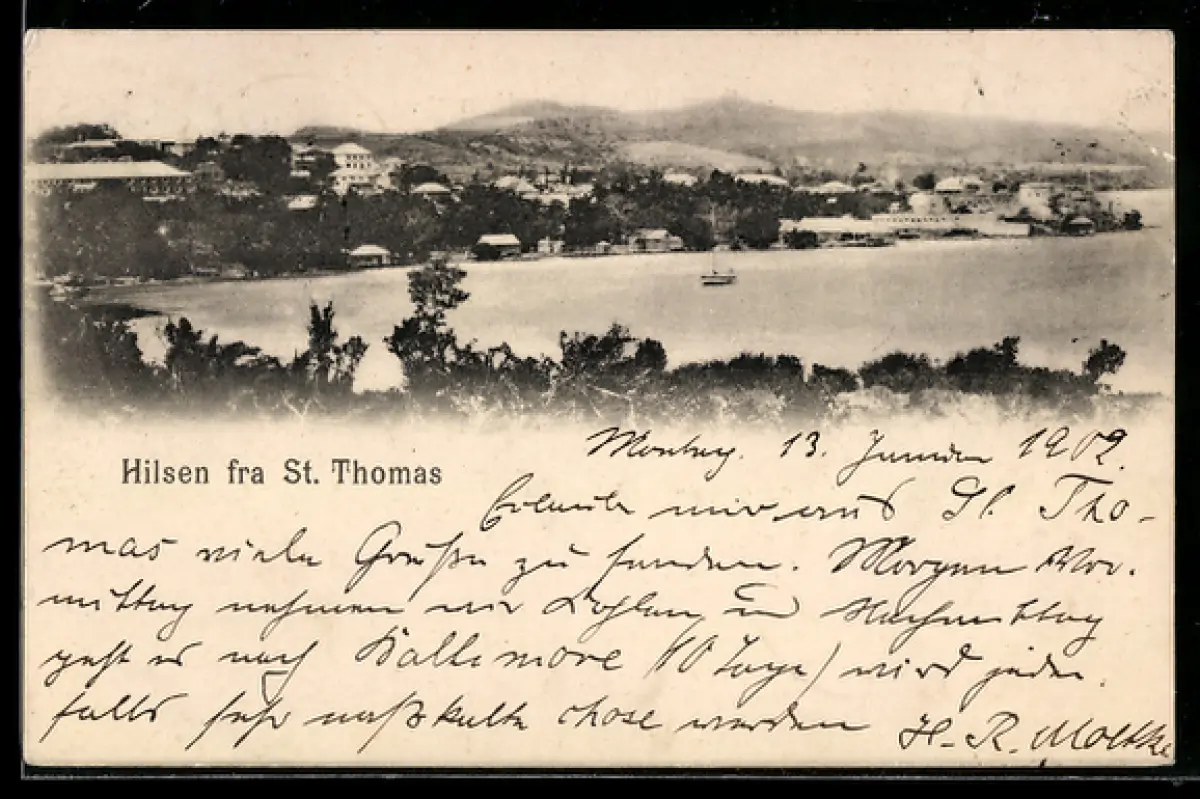 Hilsen fra St. Thomas
Montag. 13. Januar 1902.
Erlaube mir aus St. Tho-
mas viele Grüße zu senden. Morgen Vor-
mittag nehmen wir Kohlen, u Nachmittag
geht es nach Baltimore (10 Tage) wird jeden-
falls sehr naßkalte chose werden H. R. Moltke